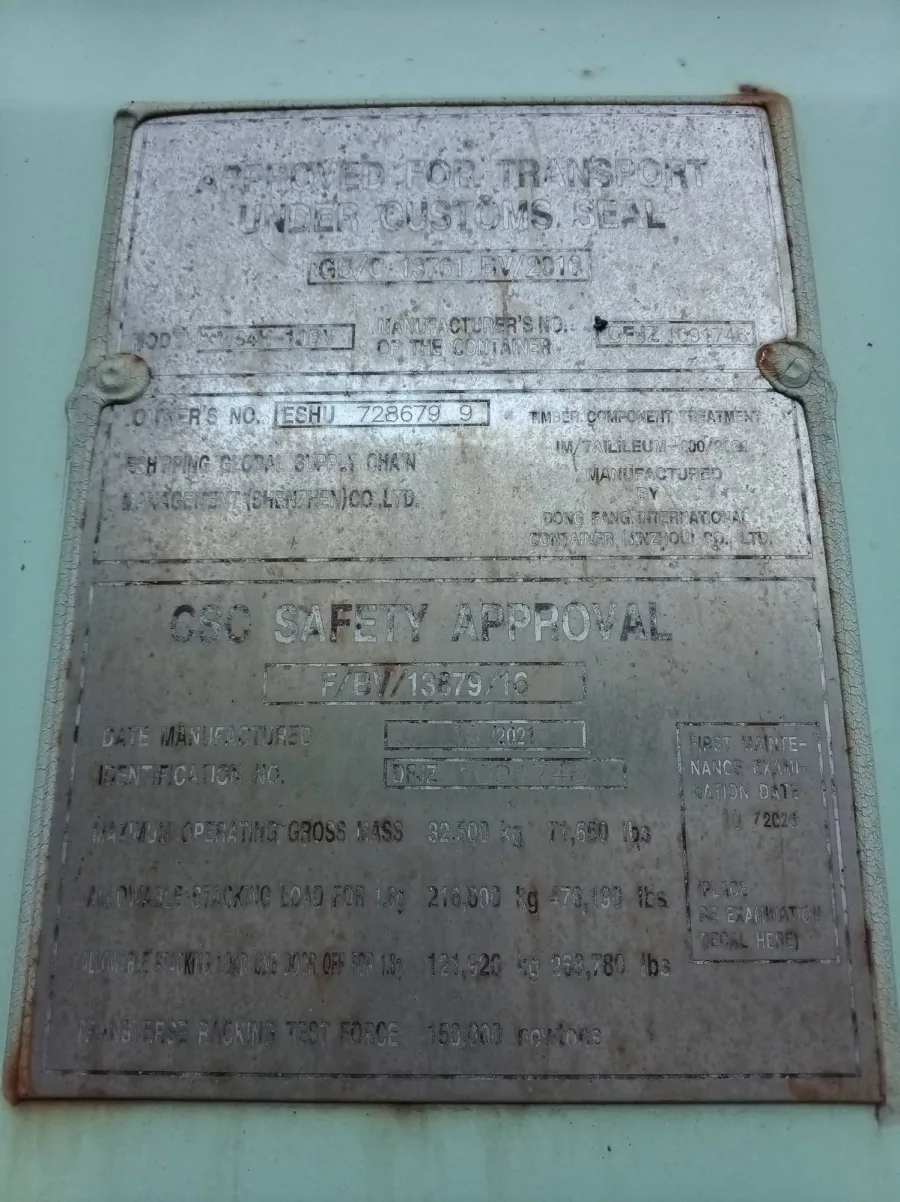 APPROVED FOR TRANSPORT
UNDER CUSTOMS SEAL
MANUFACTURER'S NO.
OF THE CONTAINER
OWNER'S NO. ESHU 728679 9
TIMBER COMPONENT TREATMENT
GLOBAL SUPPLY CHAIN
MANAGEMENT (SHENZHEN)CO.,LTD.
MANUFACTURED
BY
DONG FANG INTERNATIONAL
CONTAINER (JINZHOU) CO., LTD.
CSC SAFETY APPROVAL
F/BV/13879/16
DATE MANUFACTURED /2021
IDENTIFICATION NO. DFJZ
MAXIMUM OPERATING GROSS MASS 32,500 kg 71,650 lbs
ALLOWABLE STACKING LOAD FOR 1.8g 216,000 kg 476,190 lbs
ALLOWABLE STACKING LOAD ONE DOOR OFF FOR 1.8g 121,920 kg 268,780 lbs
TRANSVERSE RACKING TEST FORCE 150,000 newtons
FIRST MAINTE-
NANCE EXAMI-
NATION DATE
(PLACE
RE EXAMINATION
DECAL HERE)